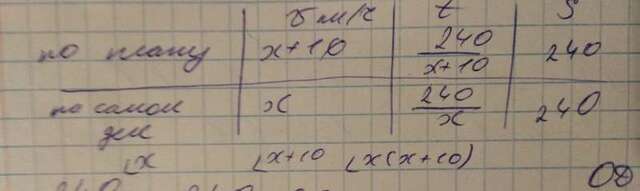 v км/ч t S
по плану x+10 240/x+10 240
на самом деле x 240/x 240
∟x ∟x+10 ∟x(x+10)
ОД